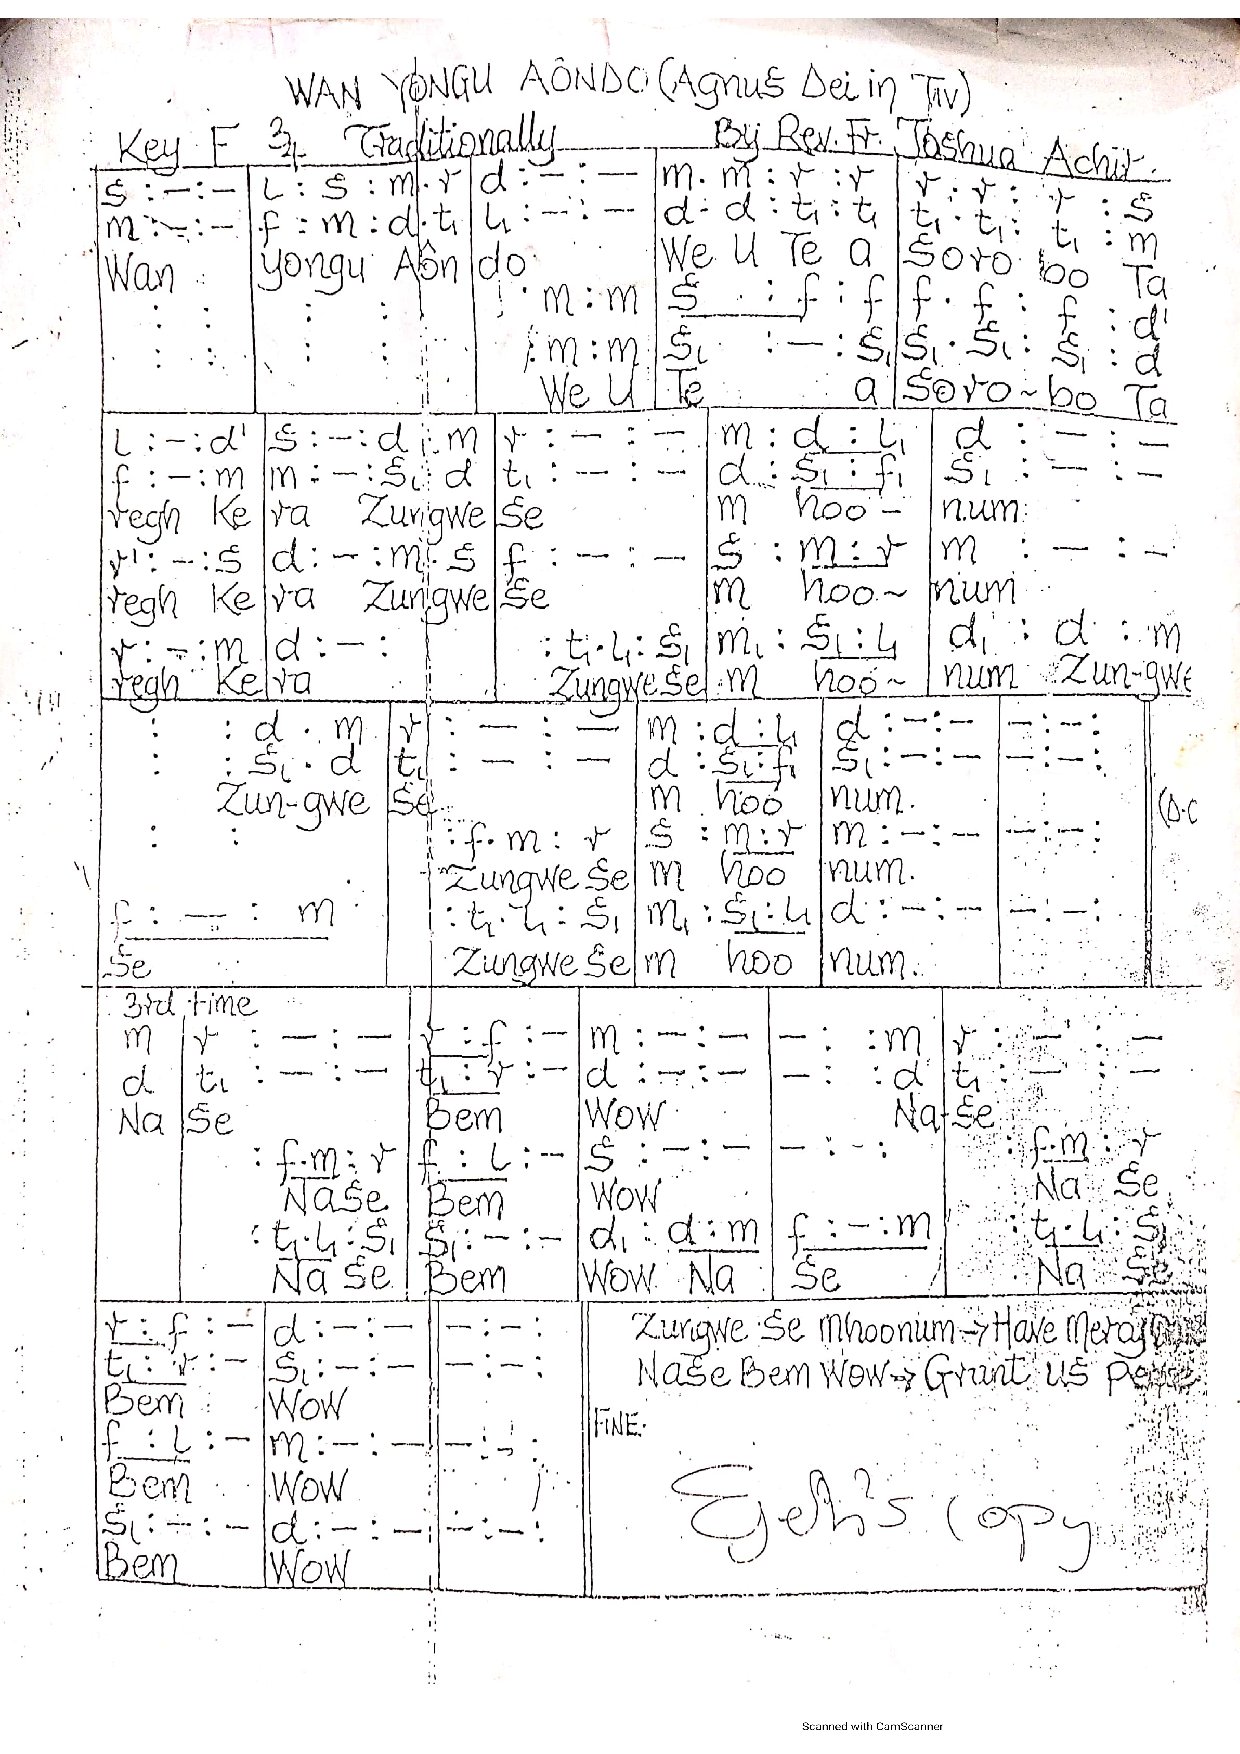 WAN YONGU AÔNDO (Agnus Dei in Tiv)
Key F 3/4 Traditionally By Rev. Fr. Joshua Achir.
s : – : – | l : s : m . r | d : – : – | m . m : r : r | r . r : r : s
m : – : – | f : m : d . t₁ | l₁ : – : – | d . d : t₁ : t₁ | t₁ . t₁ : t₁ : m
Wan yongu Aôn do We U Te a Soro bo Ta
: : | : : | : m : m | s : f : f | f . f : f : d'
: : | : : | : m : m | s₁ : – : s₁ | s₁ . s₁ : s₁ : d
We U Te a Soro~bo Ta
l : – : d' | s : – : d . m | r : – : – | m : d : l₁ | d : – : –
f : – : m | m : – : s₁ . d | t₁ : – : – | d : s₁ : f₁ | s₁ : – : –
regh Ke ra Zungwe Se m hoo – num
r' : – : s | d : – : m . s | f : – : – | s : m : r | m : – : –
regh Ke ra Zungwe Se m hoo~ num
r : – : m | d : – : | : t₁ . l₁ : s₁ | m₁ : s₁ : l₁ | d₁ : d : m
regh Ke ra Zungwe Se m hoo~ num Zun-gwe
: : d . m | r : – : – | m : d : l₁ | d : – : – | – : – :
: : s₁ . d | t₁ : – : – | d : s₁ : f₁ | s₁ : – : – | – : – :
Zun-gwe Se m hoo num. (D.C
: : | : f . m : r | s : m : r | m : – : – | – : – :
Zungwe Se m hoo num.
f : – : m | : t₁ . l₁ : s₁ | m₁ : s₁ : l₁ | d : – : – | – : – :
Se Zungwe Se m hoo num.
3rd time
m | r : – : – | r : f : – | m : – : – | – : : m | r : – : –
d | t₁ : – : – | t₁ : r : – | d : – : – | – : : d | t₁ : – : –
Na Se Bem Wow Na-Se
: f . m : r | f : l : – | s : – : – | – : – : | : f . m : r
Na Se Bem Wow Na Se
: t₁ . l₁ : s₁ | s₁ : – : – | d₁ : d : m | f : – : m | : t₁ . l₁ : s₁
Na Se Bem Wow Na Se Na Se
r : f : – | d : – : – | – : – :
t₁ : r : – | s₁ : – : – | – : – :
Bem Wow
f : l : – | m : – : – | – : – :
Bem Wow
s₁ : – : – | d : – : – | – : – :
Bem Wow
Zungwe Se Mhoonum → Have Mercy
NaSe Bem Wow → Grant us Peace
FINE.
Ejeh's Copy
Scanned with CamScanner